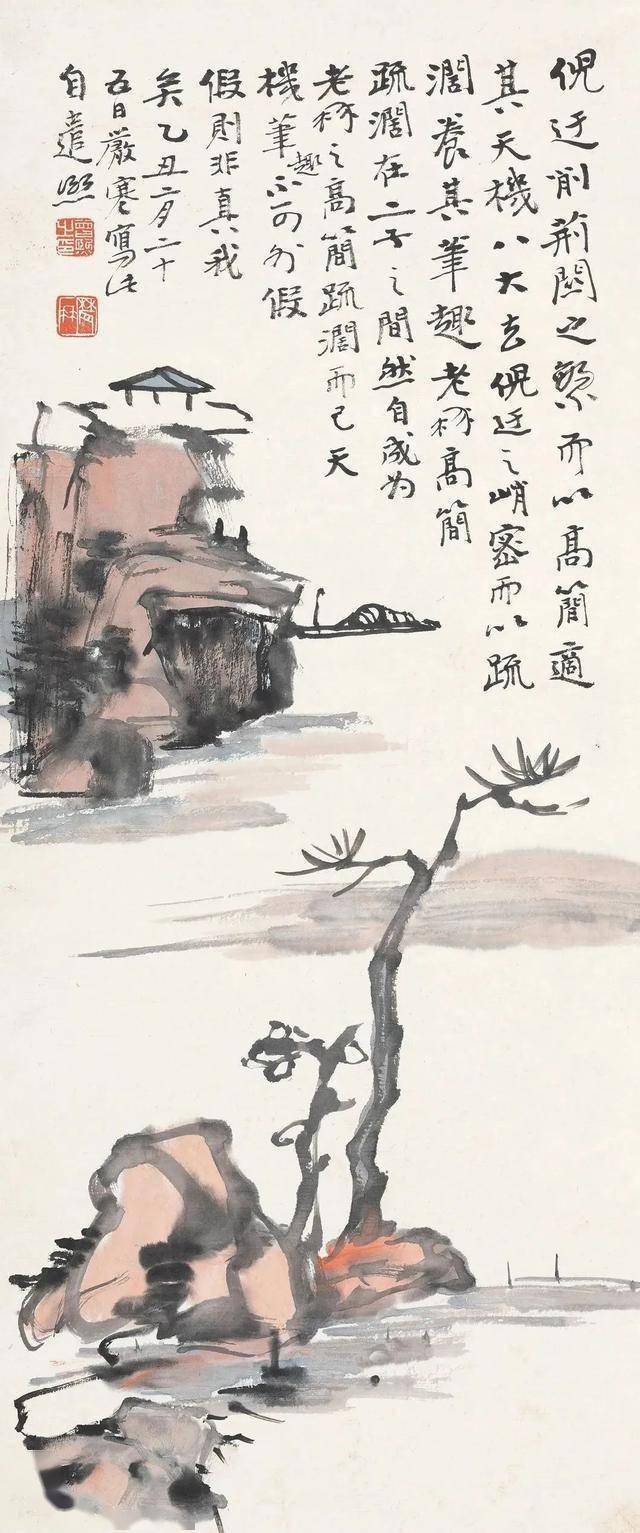 倪迂削荊關之繁而以高簡適
其天機八大去倪迂之峭密而以疏
濶養其筆趣老髯高簡
疏濶在二子之間然自成為
老髯之高簡疏濶而已天
機筆趣不可外假
假則非真我
矣乙丑二月二十
五日嚴寒寫此
自遣熙
曾熙之印
農髯